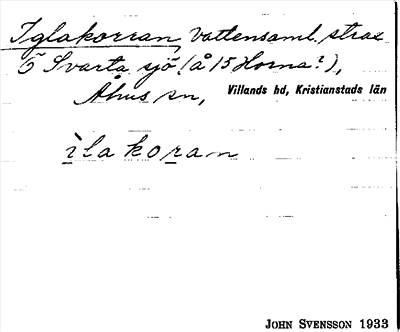 Iglakorran, vattensaml. strax
Ö Svarta sjö (å 15 Horna?),
Åhus sn, Villands hd, Kristianstads län
ìlakoran
JOHN SVENSSON 1933